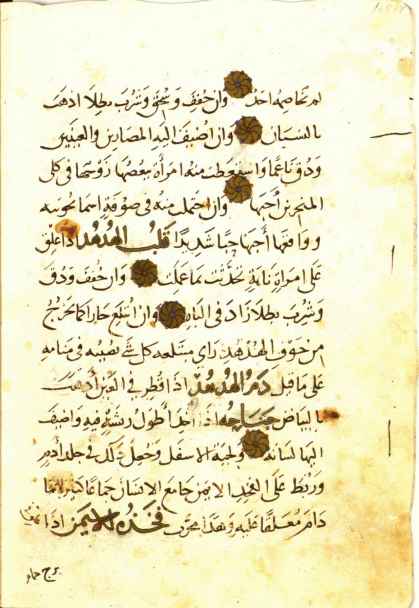 لم يخاصمه احد وان جفف وسحق وشرب بطلا اذهب
بالنسيان وان اضيف اليه المصارين والعينين
ودق ناعما واسعطت منه امرأة بعضها زوجها في كل
المنخرين أحبها وان احتملت منه في صوفة اسما محبوبه
وواقعها أحبها حبا شديدا قلب الهدهد اذا علق
على امراة نايمة تحدثت بما عملت وان جفف ودق
وشرب بطلا زاد في الباه وان ابتلع حارا كما يخرج
من جوف الهدهد راى مبتلعه كل شي يصيبه في منامه
على ما قيل دم الهدهد اذا قطر في العين أذهب
بالبياض جناحه اذا اخذ أطول ريشة فيه واضيف
اليها لسانه ولحيه الاسفل وجعل ذلك في جلد أدم
وربط على الفخد الايمن جامع الانسان جماعا كثيرا ما
دام معلقا عليه وهذا مجرب فخده الايمن اذا